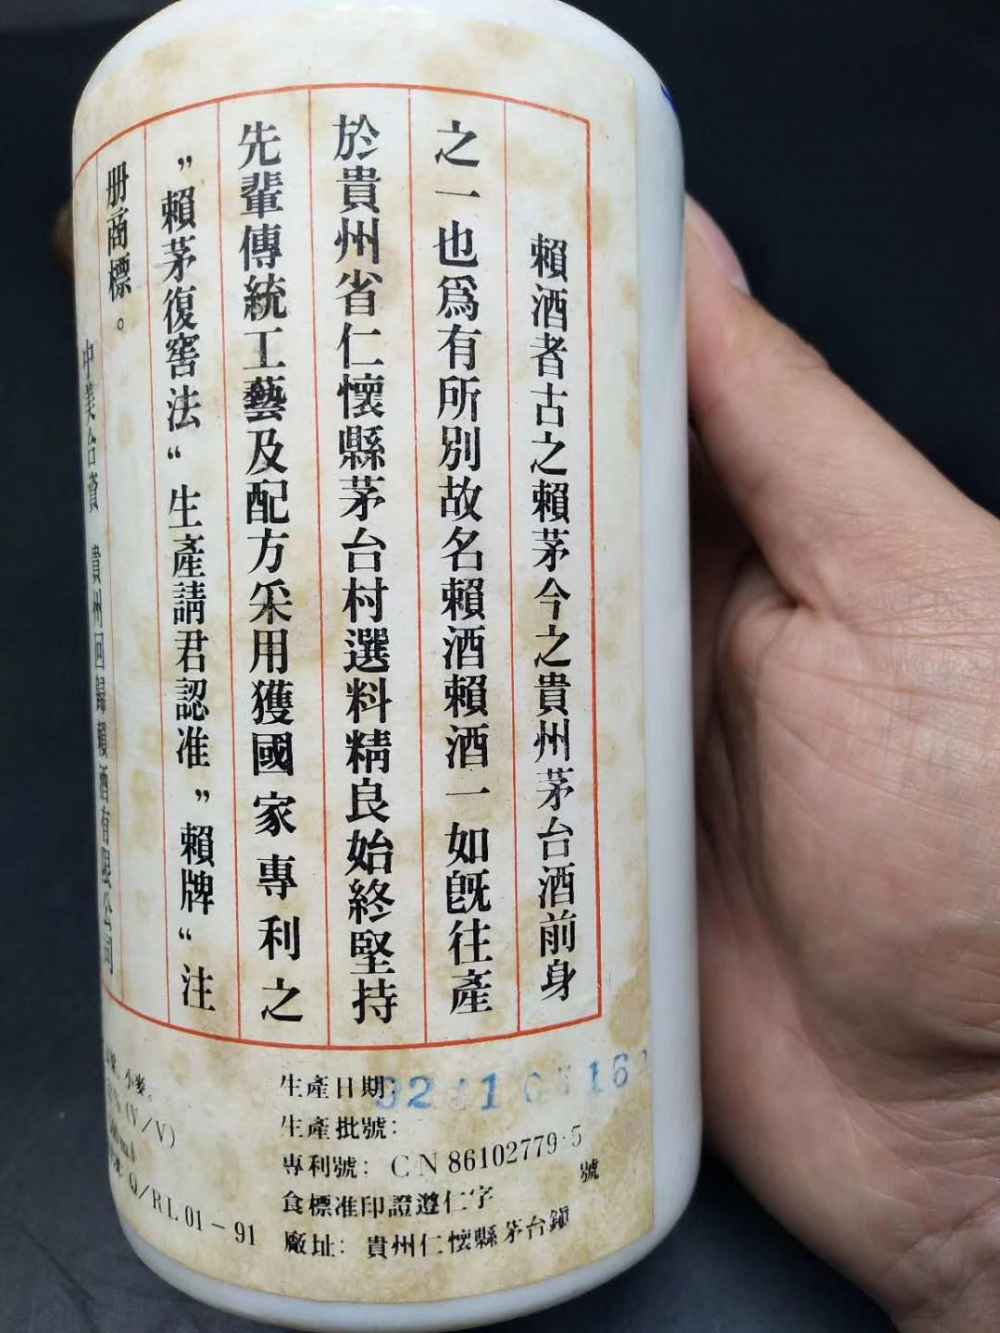 賴酒者古之賴茅今之貴州茅台酒前身
之一也爲有所別故名賴酒賴酒一如旣往產
於貴州省仁懷縣茅台村選料精良始終堅持
先輩傳統工藝及配方采用獲國家專利之
”賴茅復窖法“生產請君認准”賴牌“注
册商標。
中美台資 貴州回歸賴酒有限公司
小麥。
(V/V)
Q/RL 01－91
生產日期:
生產批號:
專利號: CN 86102779·5
食標准印證遵仁字 號
廠址: 貴州仁懷縣茅台鎮